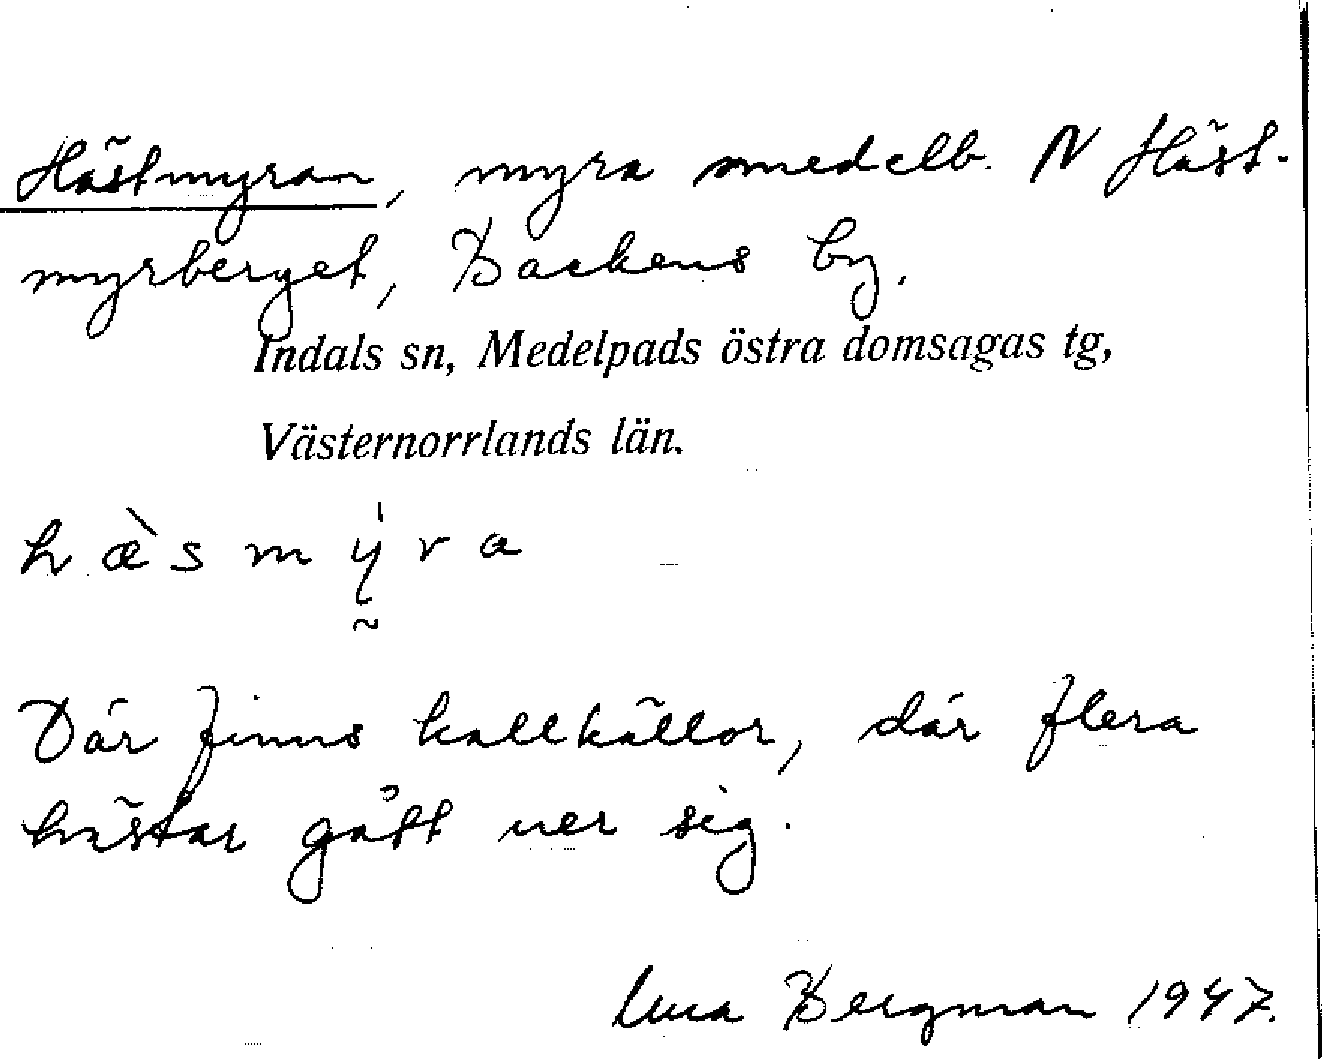 Hästmyran, myra omedelb. N Häst-
myrberget, Backens by.
Indals sn, Medelpads östra domsagas tg,
Västernorrlands län.
h æ̀ s m y̰̍ r a
Där finns kallkällor, där flera
hästar gått ner sig.
Bergman 1947.